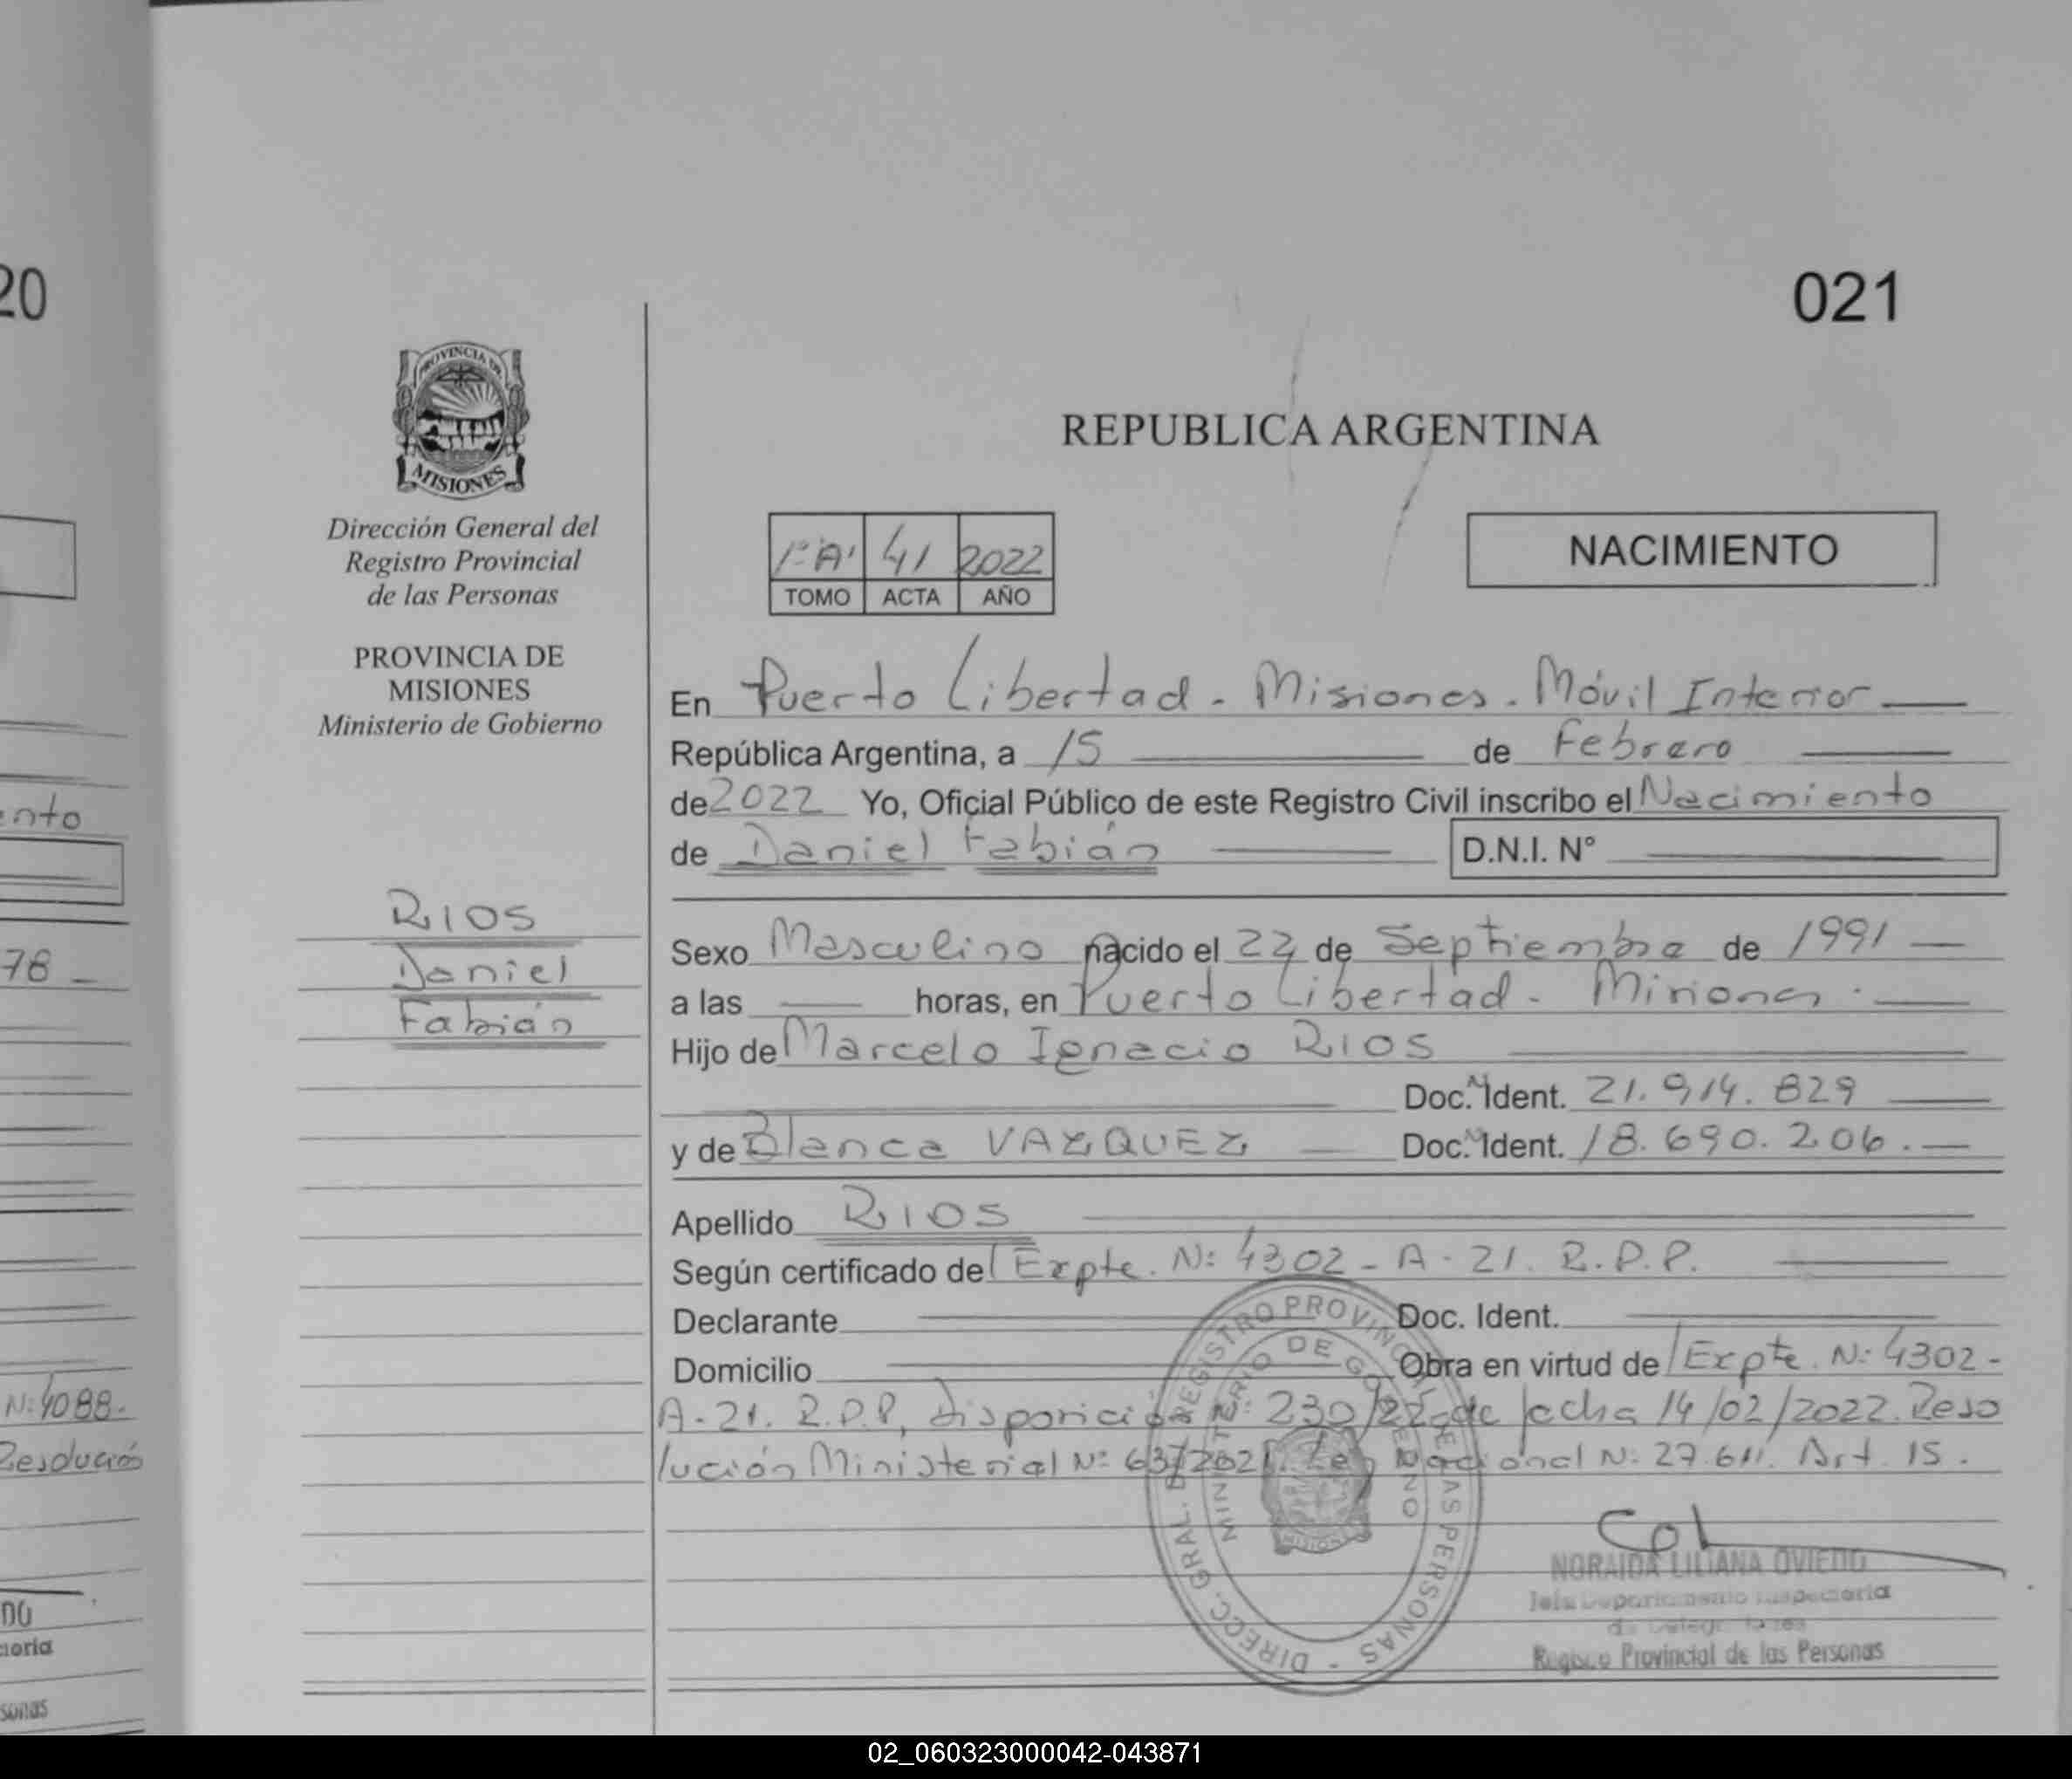 20
021
PROVINCIA DE
MISIONES
REPUBLICA ARGENTINA
Dirección General del
Registro Provincial
de las Personas
PROVINCIA DE
MISIONES
Ministerio de Gobierno
1º "A" 41 2022
TOMO ACTA AÑO
NACIMIENTO
En Puerto Libertad - Misiones. Móvil Interior
República Argentina, a 15 de Febrero
de 2022 Yo, Oficial Público de este Registro Civil inscribo el Nacimiento
de Daniel Fabián D.N.I. Nº
RIOS
Daniel
Fabián
Sexo Masculino nacido el 22 de Septiembre de 1991
a las horas, en Puerto Libertad - Misiones.
Hijo de Marcelo Ignacio RIOS
Doc. Ident. 21.914.829
y de Blanca VAZQUEZ Doc. Ident. 18.690.206.
Apellido RIOS
Según certificado del Expte. Nº 4302 - A - 21. R.P.P.
Declarante Doc. Ident.
Domicilio Obra en virtud de Expte. Nº 4302 -
A - 21. R.P.P, Disposición Nº 230/22 de fecha 14/02/2022. Reso
lución Ministerial Nº 637/2021. Ley Nacional Nº 27.611. Art. 15.
DIRECC. GRAL. DE REGISTRO PROVINCIAL DE LAS PERSONAS -
MINISTERIO DE GOBIERNO
MISIONES
NORAIDA LILIANA OVIEDO
Registro Provincial de las Personas
ento
78
Nº 4088.
Resolución
02_060323000042-043871